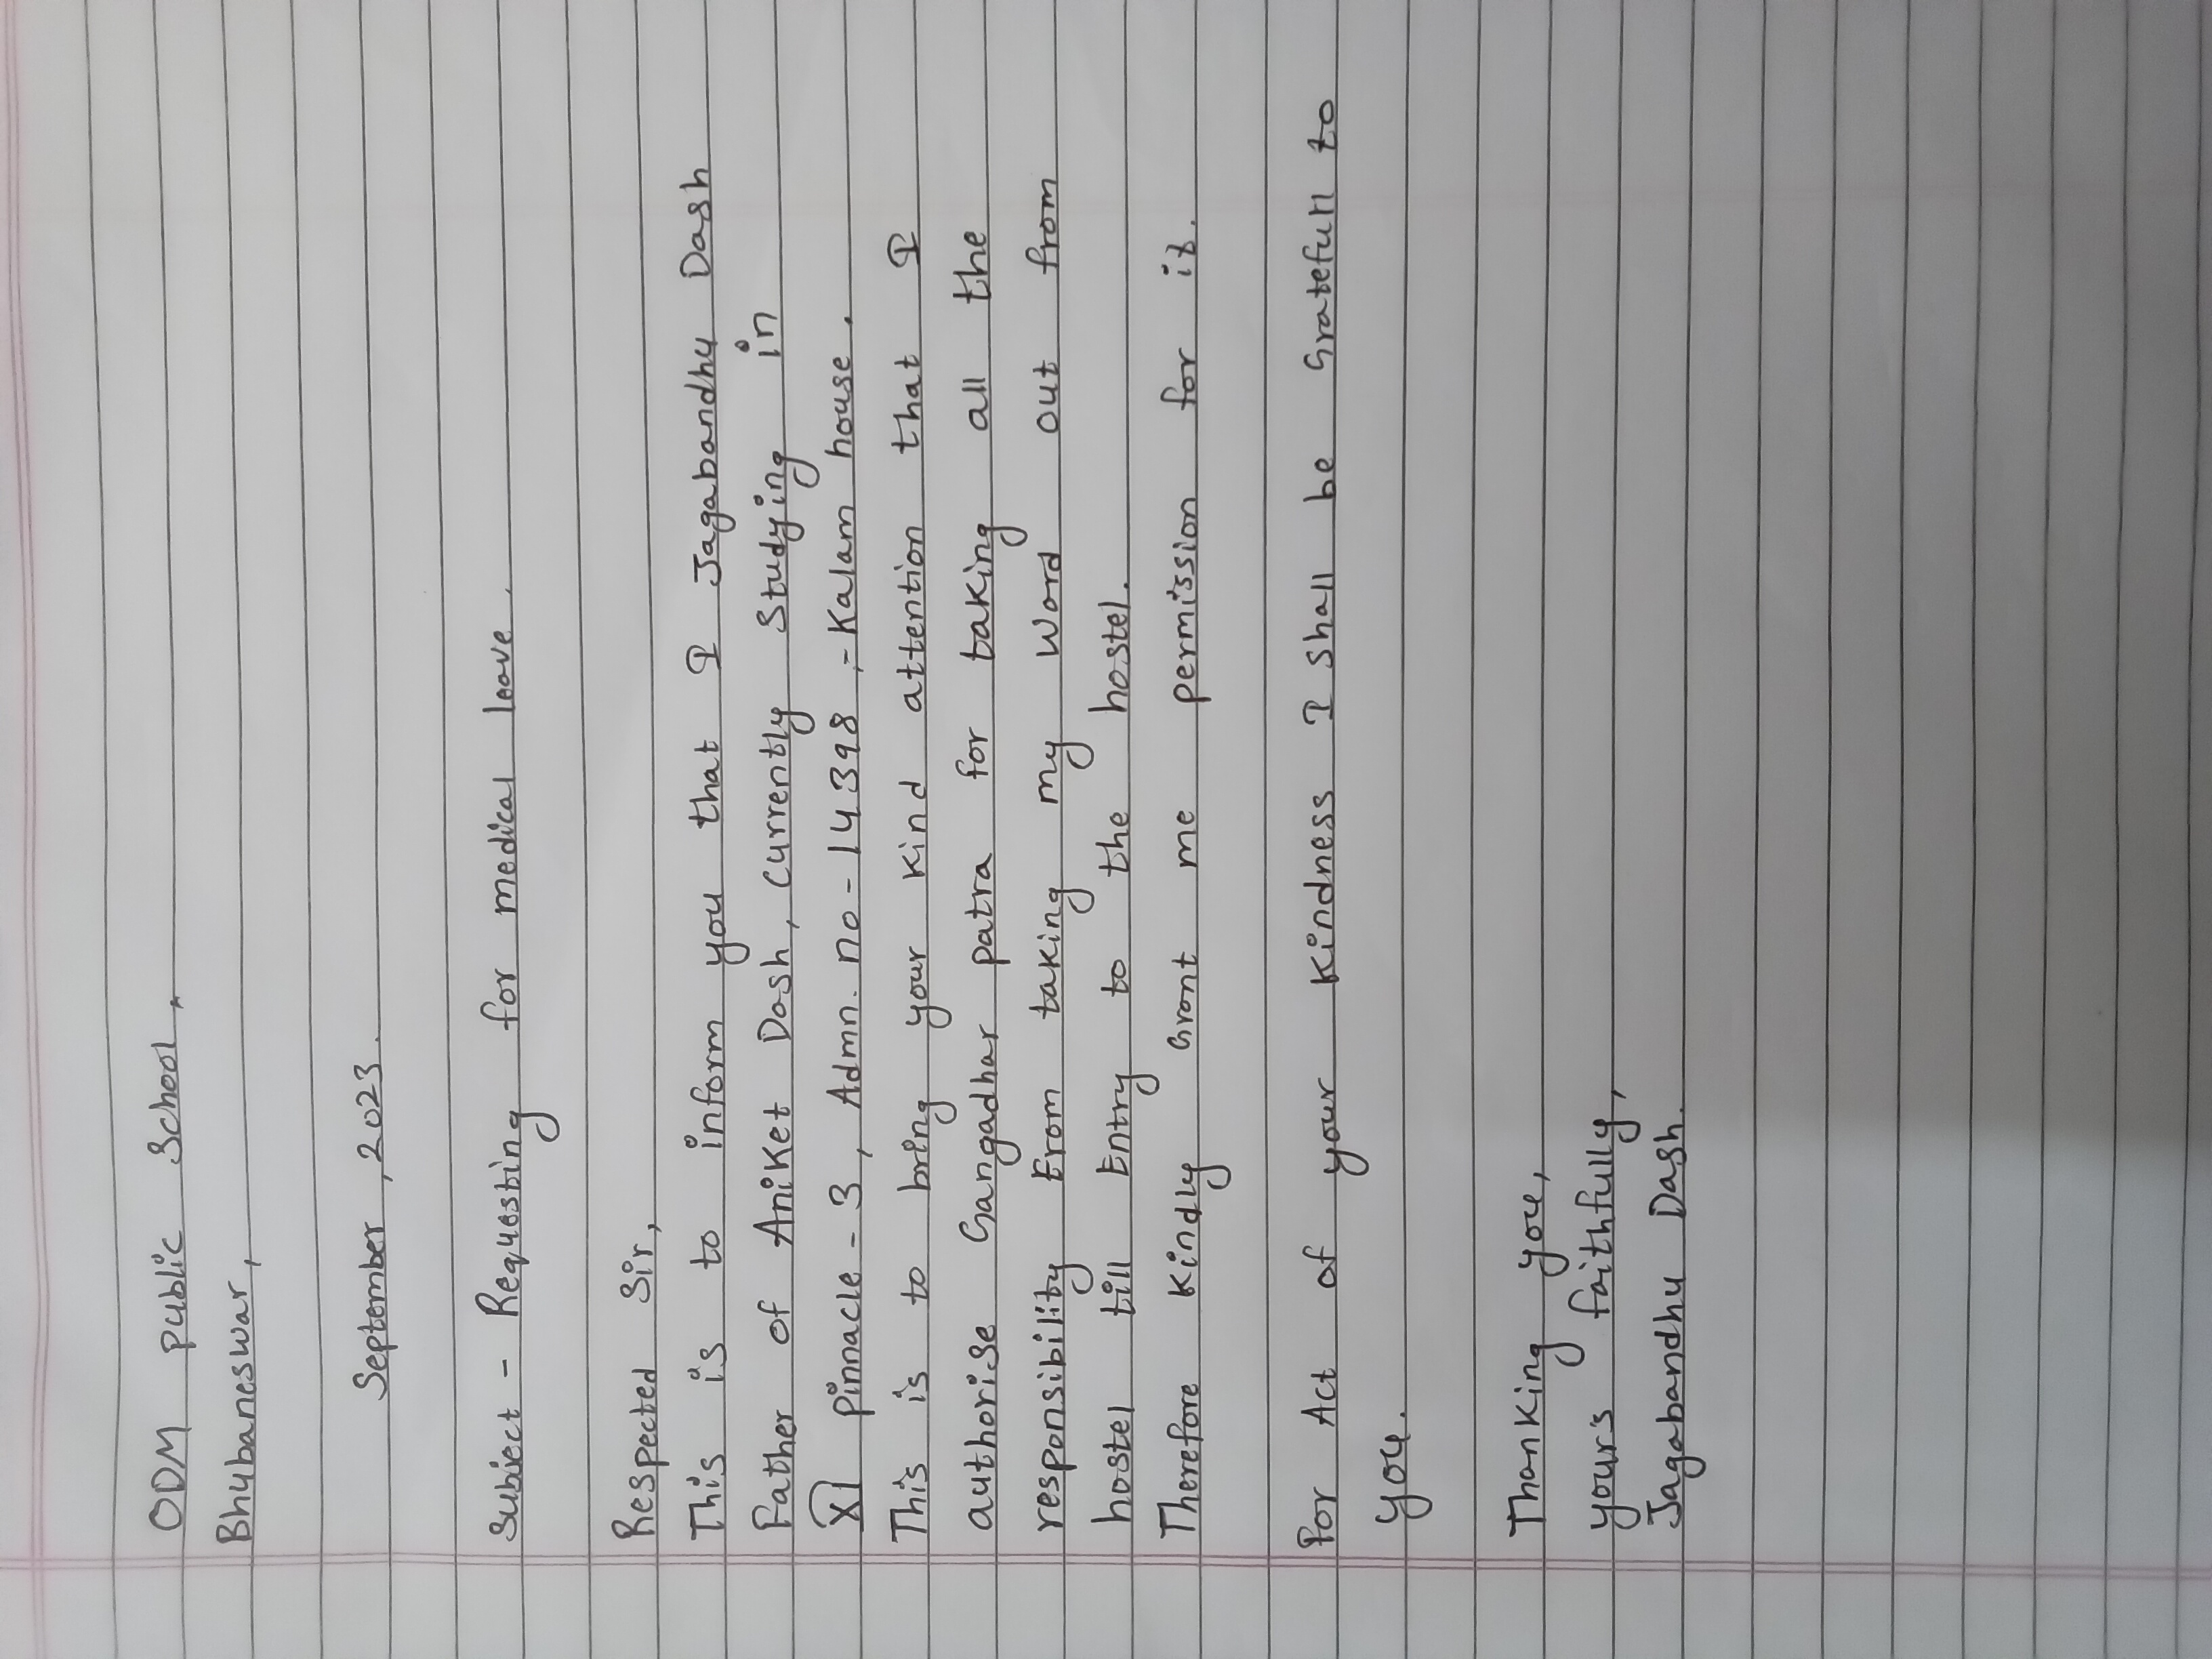 ODM Public School,
Bhubaneswar,
September, 2023.
Subject - Requesting for medical leave.
Respected Sir,
This is to inform you that I Jagabandhu Dash
Father of Aniket Dash, Currently Studying in
XI Pinnacle - 3, Admn. no - 14398,- Kalam house.
This is to bring your kind attention that I
authorise Gangadhar patra for taking all the
responsibility From taking my Word out from
hostel till Entry to the hostel.
Therefore Kindly Grant me permission for it.
For Act of your Kindness I shall be Gratefull to
you.
Thanking you,
yours faithfully,
Jagabandhu Dash.